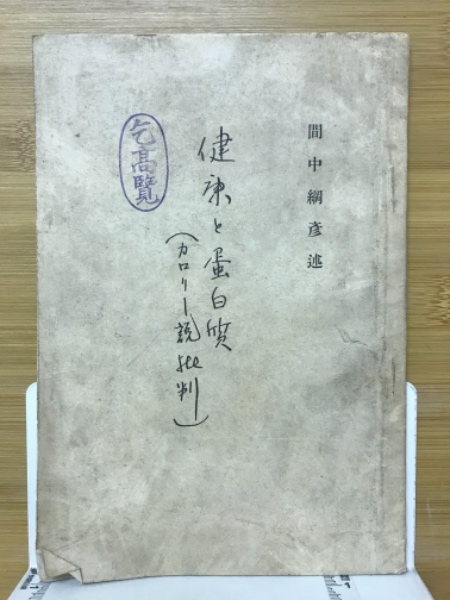 間中綱彦述
健康と蛋白質
(カロリー説批判)
乞高覧